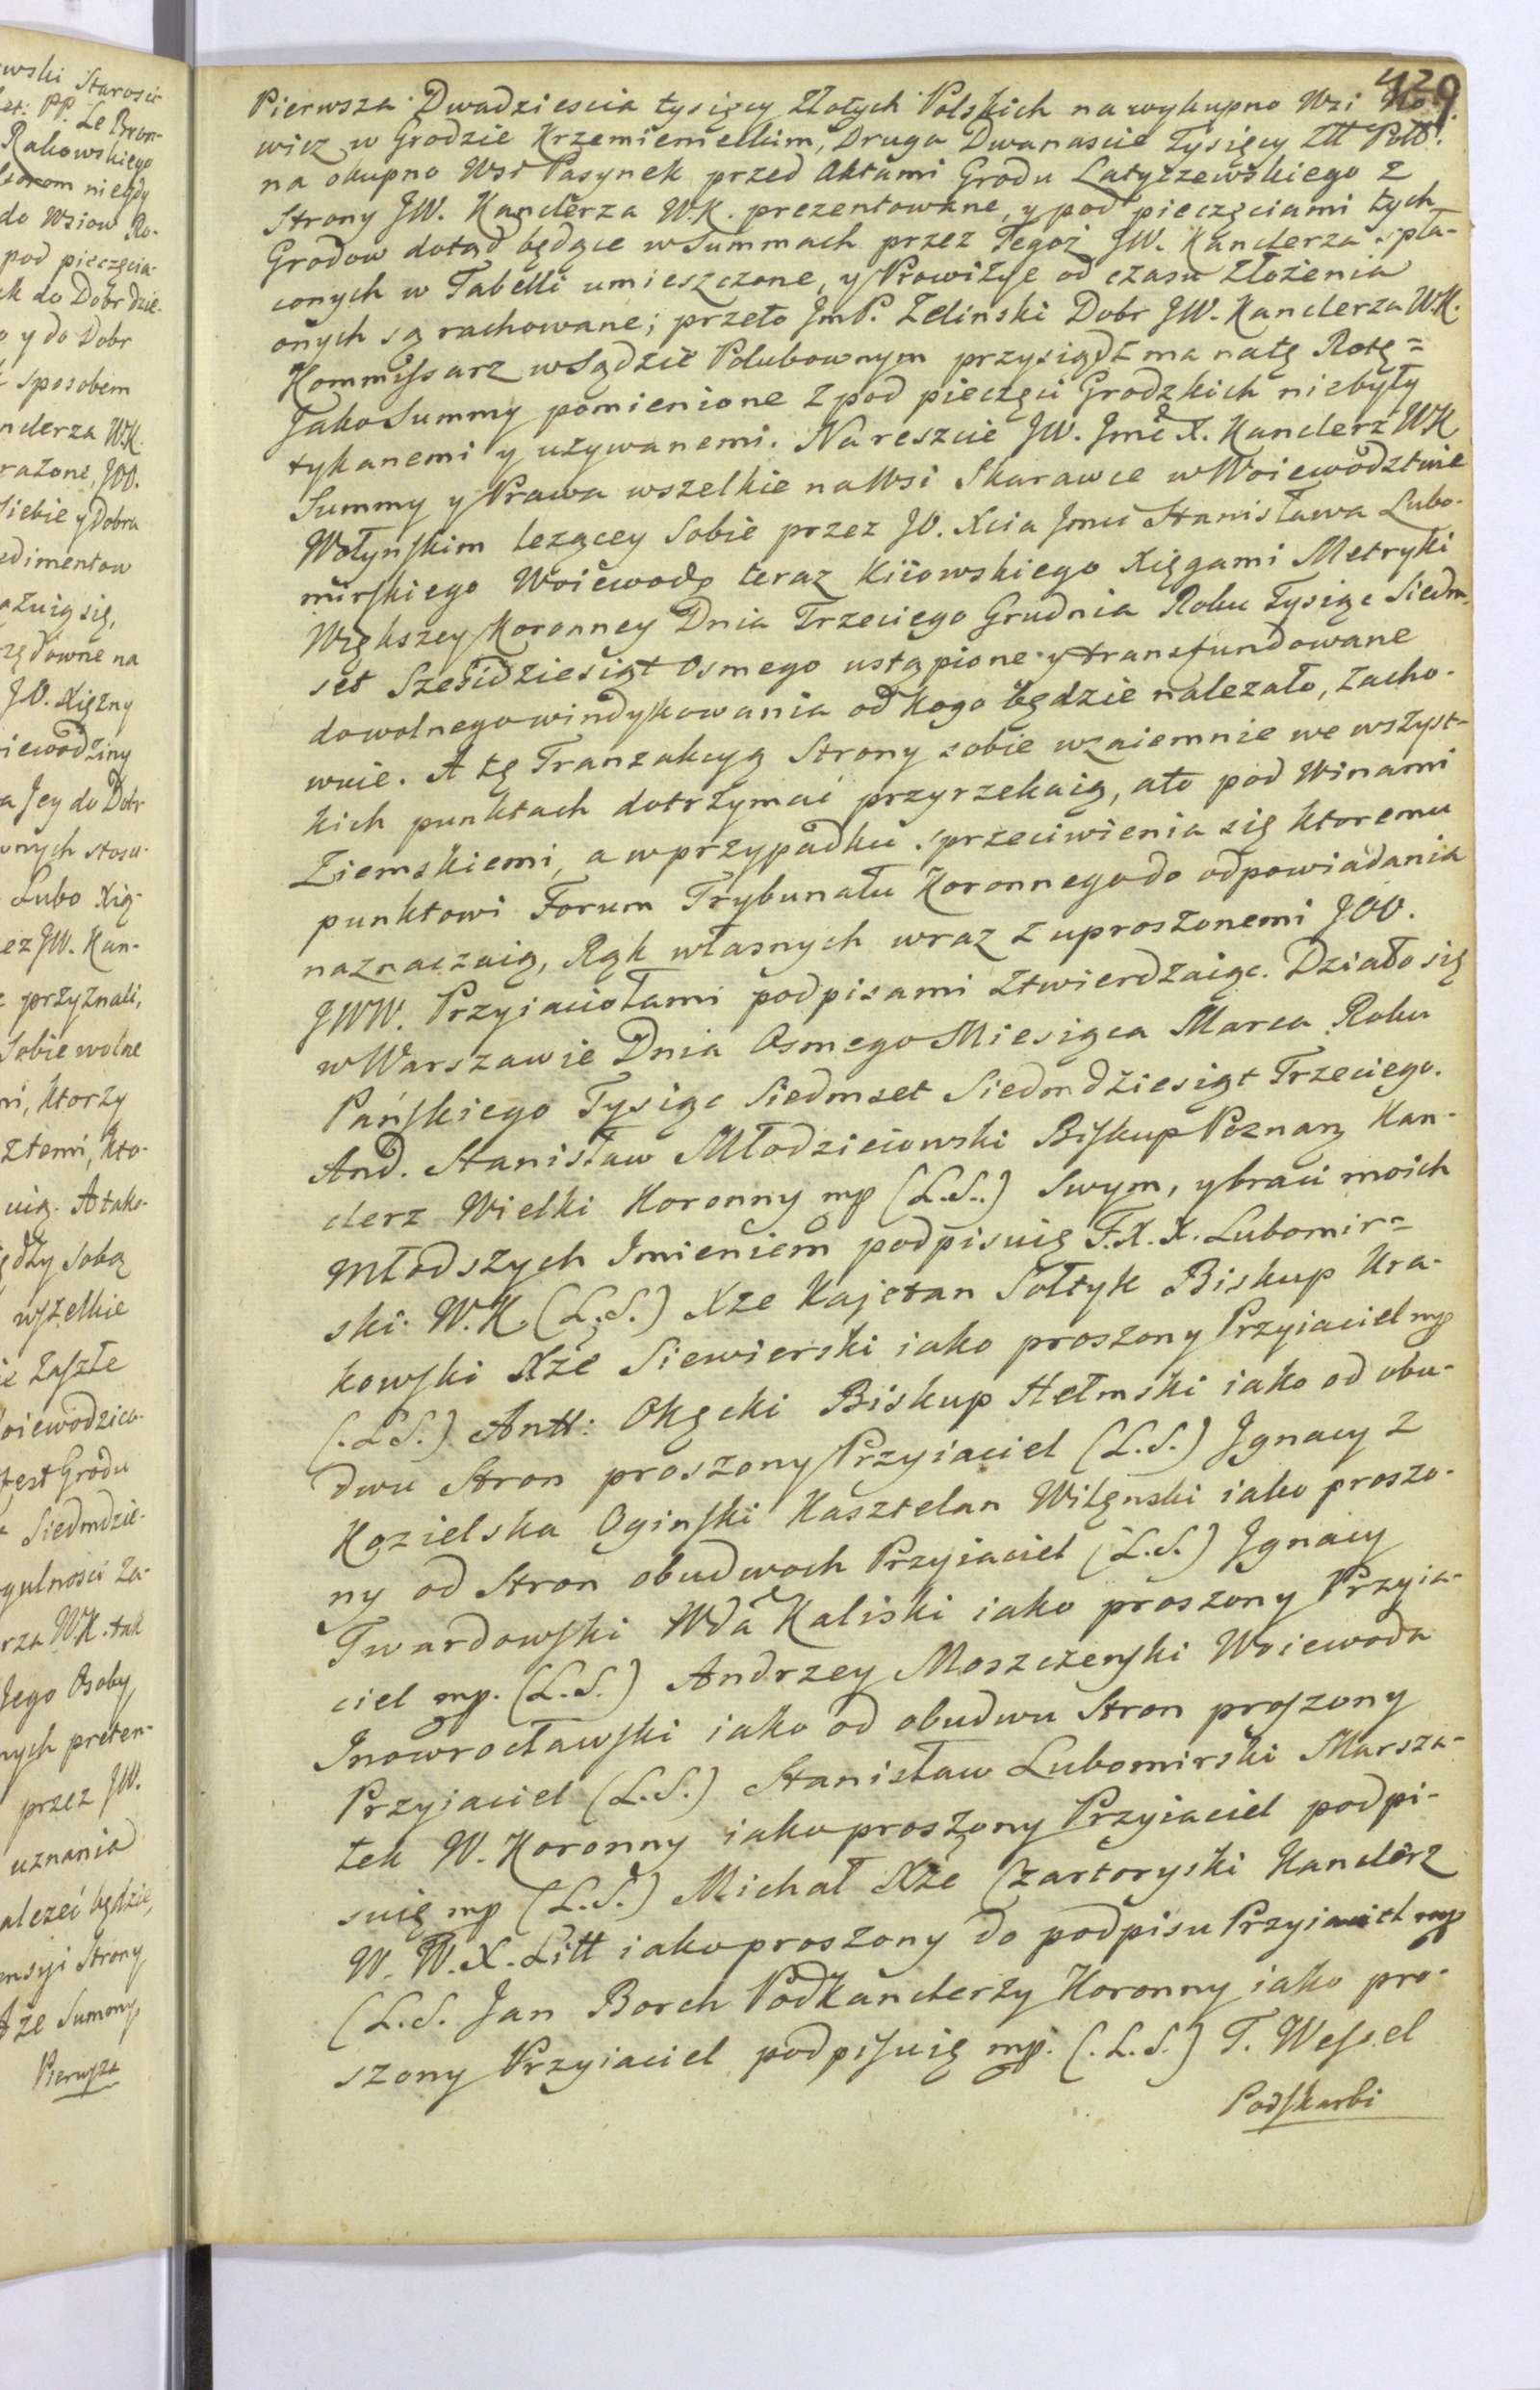 429
Pierwsza Dwadziescia tysięcy Złotych Polskich na wykupno Wsi No-
wicz w Grodzie Krzemienieckim, Druga Dwanascie Tysięcy Złł Polō.
na okupno Wsi Pasynek przed Aktami Grodu Latyczewskiego z
Strony JW. Kanclerza W.K. prezentowane, y pod pieczęciami tych
Grodow dotąd będące w Summach przez Tegoż JW. Kanclerza spła-
conych w Tabelli umieszczone, y Prowizye od czasu złożenia
onych są rachowane; przeto JmP. Zelinski Dobr JW. Kanclerza W.K.
Kommissarz w Sądzie Polubownym przysiądz ma na tę Rotę =
Jako Summy pomienione z pod pieczęci Grodzkich niebyły
tykanemi y używanemi. Nareszcie JW. Jmć X. Kanclerz WK
Summy y Prawa wszelkie na Wsi Skarawce w Woiewodztwie
Wołynskim lezącey Sobie przez JO. Xcia Jmci Stanisława Lubo-
mirskiego Woiewodę teraz Kiiowskiego Xięgami Metryki
Większey Koronney Dnia Trzeciego Grudnia Roku Tysiąc Siedm-
set Szesćdziesiąt Osmego ustąpione y transfundowane
do wolnego windykowania od kogo będzie nalezało, zacho-
wuie. A tę Tranzakcyą Strony sobie wzaiemnie we wszyst-
kich punktach dotrzymać przyrzekaią, ato pod Winami
Ziemskiemi, a w przypadku sprzeciwienia się ktoremu
punktowi Forum Trybunału Koronnego do odpowiadania
naznaczaią, Rąk własnych wraz z uproszonemi JOO.
JWW. Przyjaciołami podpisami ztwierdzaiąc. Działo się
w Warszawie Dnia Osmego Miesiąca Marca Roku
Pańskiego Tysiąc Siedmset Siedmdziesiąt Trzeciego.
And. Stanisław Młodzieiowski Biskup Poznań Kan-
clerz Wielki Koronny mp (L.S.) Swym, y braci moich
młodszych Imieniem podpisuię F.X.X. Lubomir=
ski. W.K. (L.S.) Xże Kajetan Sołtyk Biskup Kra-
kowski Xże Siewierski iako proszony Przyiaciel mp
(L.S.) Antt: Okęcki Biskup Hełmski iako od obu-
dwu Stron proszony Przyiaciel (L.S.) Jgnacy z
Kozielska Oginski Kasztelan Wilęnski iako proszo-
ny od Stron obudwoch Przyiaciel (L.S.) Jgnacy
Twardowski Wdā Kaliski iako proszony Przyia-
ciel mp. (L.S.) Andrzey Moszczenski Woiewoda
Inowrocławski iako od obudwu Stron proszony
Przyjaciel (L.S.) Stanisław Lubomirski Marsza-
łek W. Koronny iako proszony Przyiaciel podpi-
suię mp (L.S.) Michał Xże Czartoryski Kanclerz
W. W.X. Litt iako proszony do podpisu Przyiaciel mp
(L.S. Jan Borch Podkanclerzy Koronny iako pro-
szony Przyiaciel podpisuię mp. (.L.S.) T. Wessel
Podskarbi